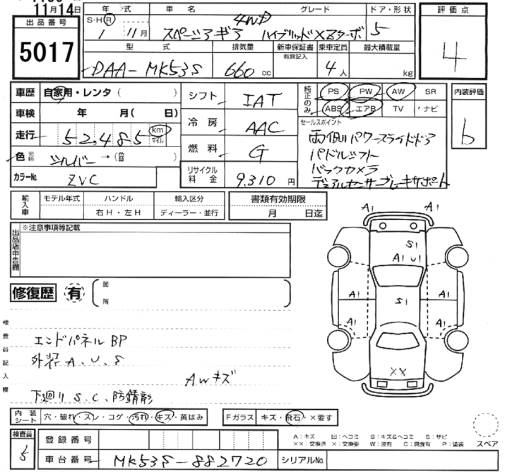 11月14日
出品番号
5017
年式 車名 グレード ドア・形状
S・H・R 4WD
1 11月 スペーシアギア ハイブリッドXZターボ 5
型式 排気量 新車保証書 乗車定員 最大積載量
有無記入
DAA-MK53S 660cc 4人 kg
評価点
4
車歴 自家用・レンタ ( )
車検 年 月( 日)
走行 52,485 km マイル
色 シルバー →( )
カラーNo. ZVC
シフト IAT
冷房 AAC
燃料 G
リサイクル料金 9,310円
純正のみ PS PW AW SR
ABS エアB TV ・ナビ
セールスポイント
両側パワースライドドア
パドルシフト
バックカメラ
デュアルセンサーブレーキサポート
内装評価
b
輸入車 モデル年式 ハンドル 輸入区分 書類有効期限
右H・左H ディーラー・並行 月 日迄
出品店申告欄
※注意事項等記載
修復歴 有
箇所
検査員記入欄
エンドパネルBP
外装A、U、S
AWキズ
下廻りS、C、防錆剤
S1
A1 U1
A1 A1
A1 S1 A1
A1 A1
XX
内装シート 穴・破れ・スレ・コゲ・汚れ・キズ・黄ばみ
Fガラス キズ・飛石・×要す
検査員
登録番号
車台番号 MK53S-882720 シリアルNo.
A：キズ U：ヘコミ B：キズ&ヘコミ S：サビ
スペア